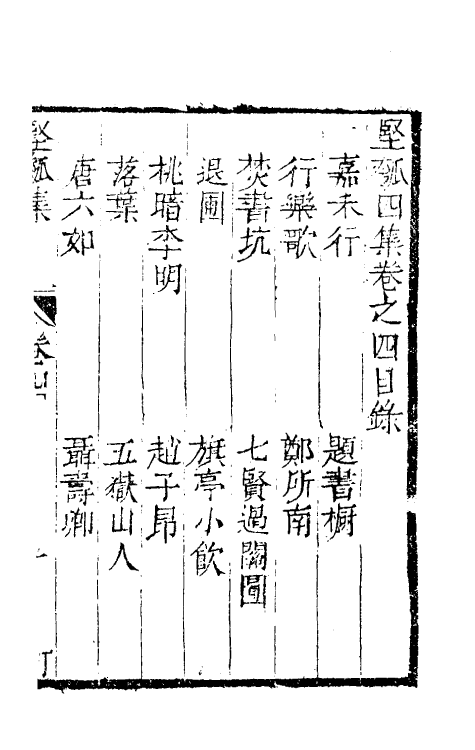 堅瓠四集卷之四目錄
嘉未行　題書橱
行樂歌　鄭所南
焚書坑　七賢過關圖
退圃　旗亭小飲
桃暗李明　趙子昂
落葉　五嶽山人
唐六如　聶壽卿
堅瓠集　卷四